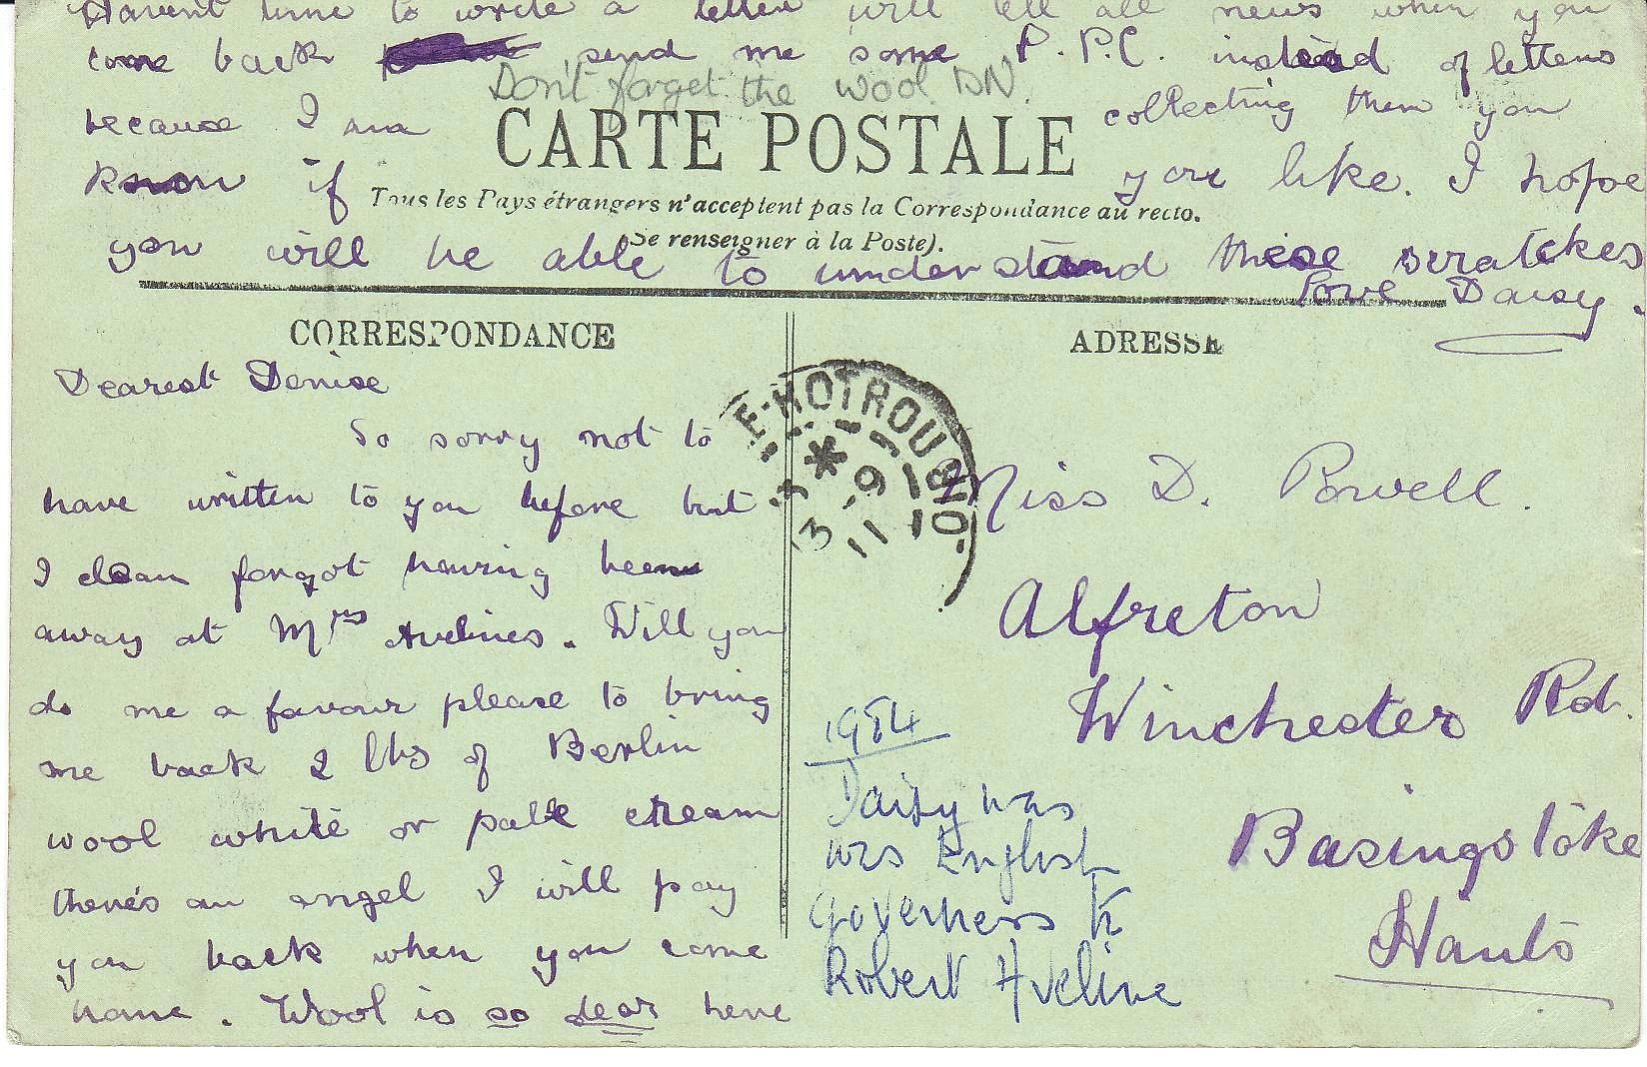 Havent time to write a letter will tell all news when you
come back send me some P.P.C. instead of letters
Don't forget the wool DN.
because I am collecting them you
CARTE POSTALE
know if you like. I hope
Tous les Pays étrangers n'acceptent pas la Correspondance au recto.
(Se renseigner à la Poste).
you will be able to understand these scratches
Love Daisy.
CORRESPONDANCE
Dearest Denise
So sorry not to
have written to you before but
I clean forgot having been
away at Mrs Avelines. Will you
do me a favour please to bring
me back 2 lbs of Berlin
wool white or pale cream
there's an angel I will pay
you back when you come
home. Wool is so dear here
ADRESSE
13 -9 11
Miss D. Powell.
Alfreton
Winchester Rd.
Basingstoke
Hants
1984
Daisy was
English
Governess to
Robert Aveline